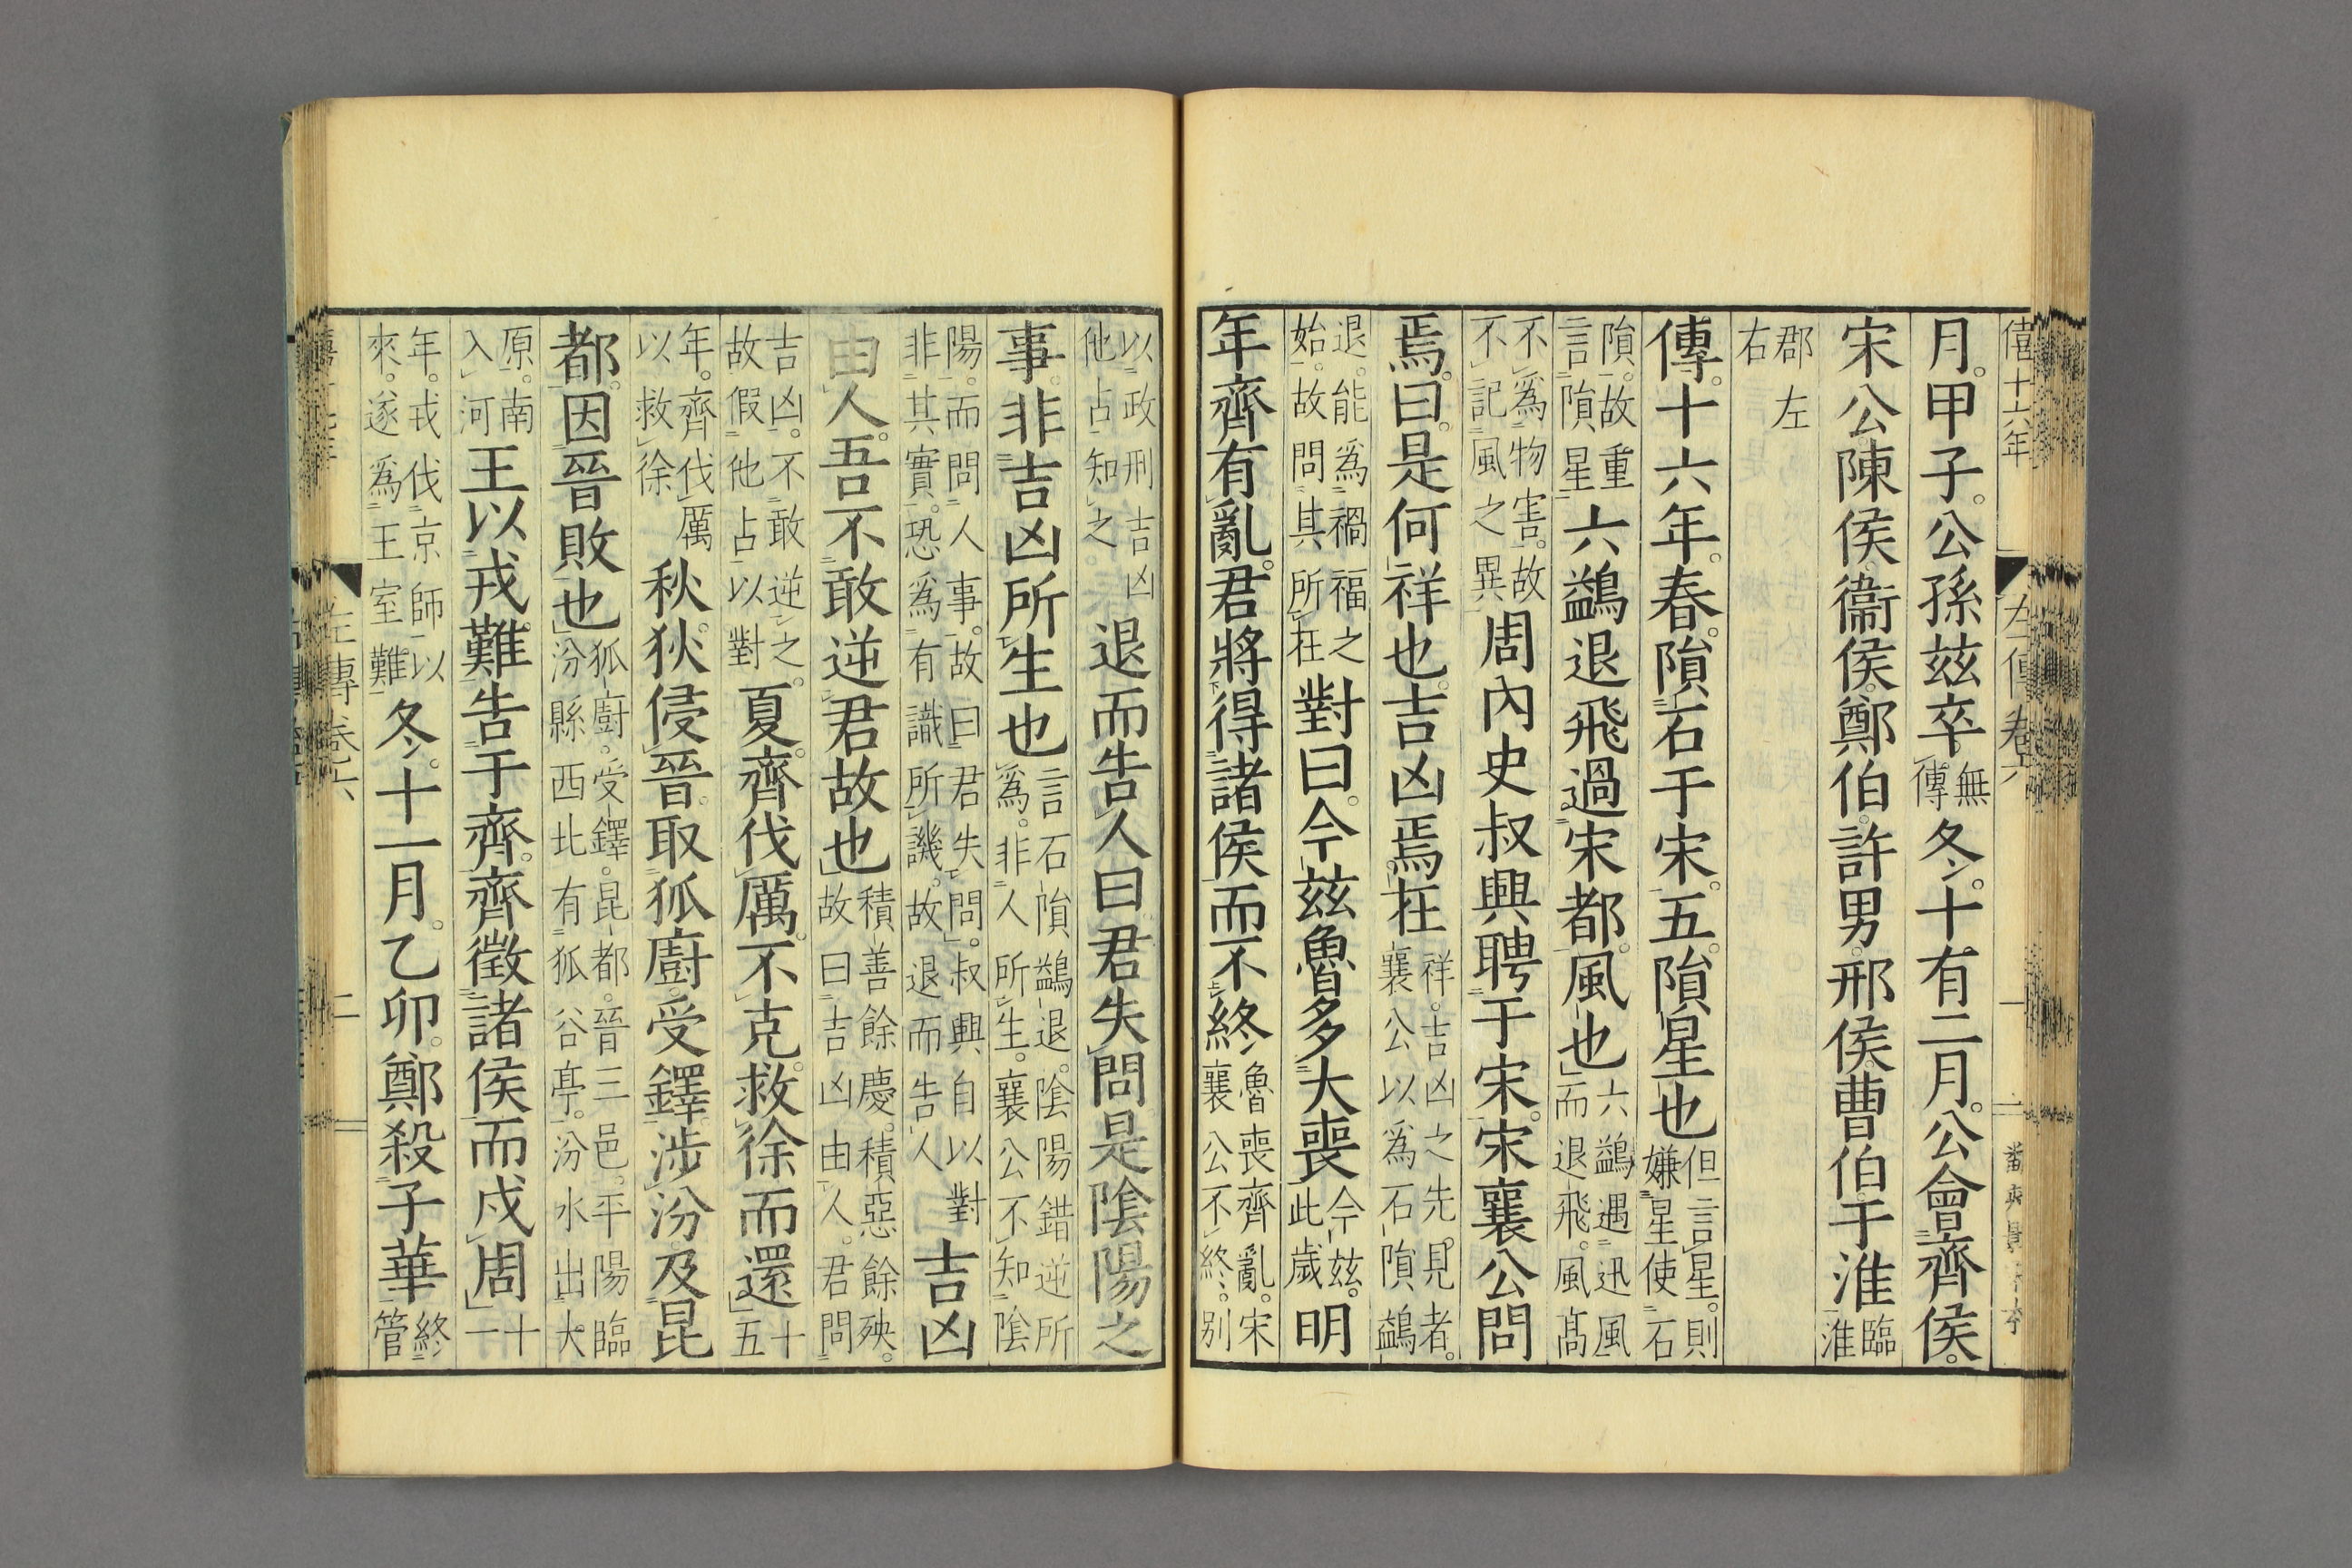 僖十六年
左傳卷六
月。甲子。公孫玆卒。無傳冬。十有二月。公會齊侯。
宋公陳侯。衞侯。鄭伯。許男。邢侯。曹伯。于淮臨淮
郡左右
傳。十六年。春。隕石于宋。五。隕星也但言星。則嫌星使石
隕。故重言隕星六鷁退飛過宋都。風也六鷁遇迅風而退飛。風髙
不爲物害。故不記風之異周內史叔興聘于宋。宋襄公問
焉。曰。是何祥也。吉凶焉在祥。吉凶之先見者。襄公以爲石隕鷁
退。能爲禍福之始。故問其所在對曰。今玆魯多大喪今玆。此歲明
年齊有亂。君將得諸侯而不終魯喪齊亂。宋襄公不終。別
以政刑吉凶他占知之。退而告人曰。君失問是隂陽之
事。非吉凶所生也言石隕鷁退。隂陽錯逆所爲。非人所生。襄公不知隂
陽。而問人事。故曰君失問。叔興自以對非其實。恐爲有識所譏。故退而告人吉凶
由人。吾不敢逆君故也積善餘慶。積惡餘殃。故曰吉凶由人。君問
吉凶。不敢逆之。故假他占以對夏。齊伐厲。不克。救徐而還十五
年。齊伐厲以救徐秋。狄侵晉。取狐廚受鐸。涉汾。及昆
都。因晉敗也狐廚。受鐸。昆都。晉三邑。平陽臨汾縣西北有狐谷亭。汾水出大
原。南入河王以戎難告于齊。齊徵諸侯而戍周十一
年。戎伐京師以來。遂爲王室難冬。十一月。乙卯。鄭殺子華終管
左傳卷六
二